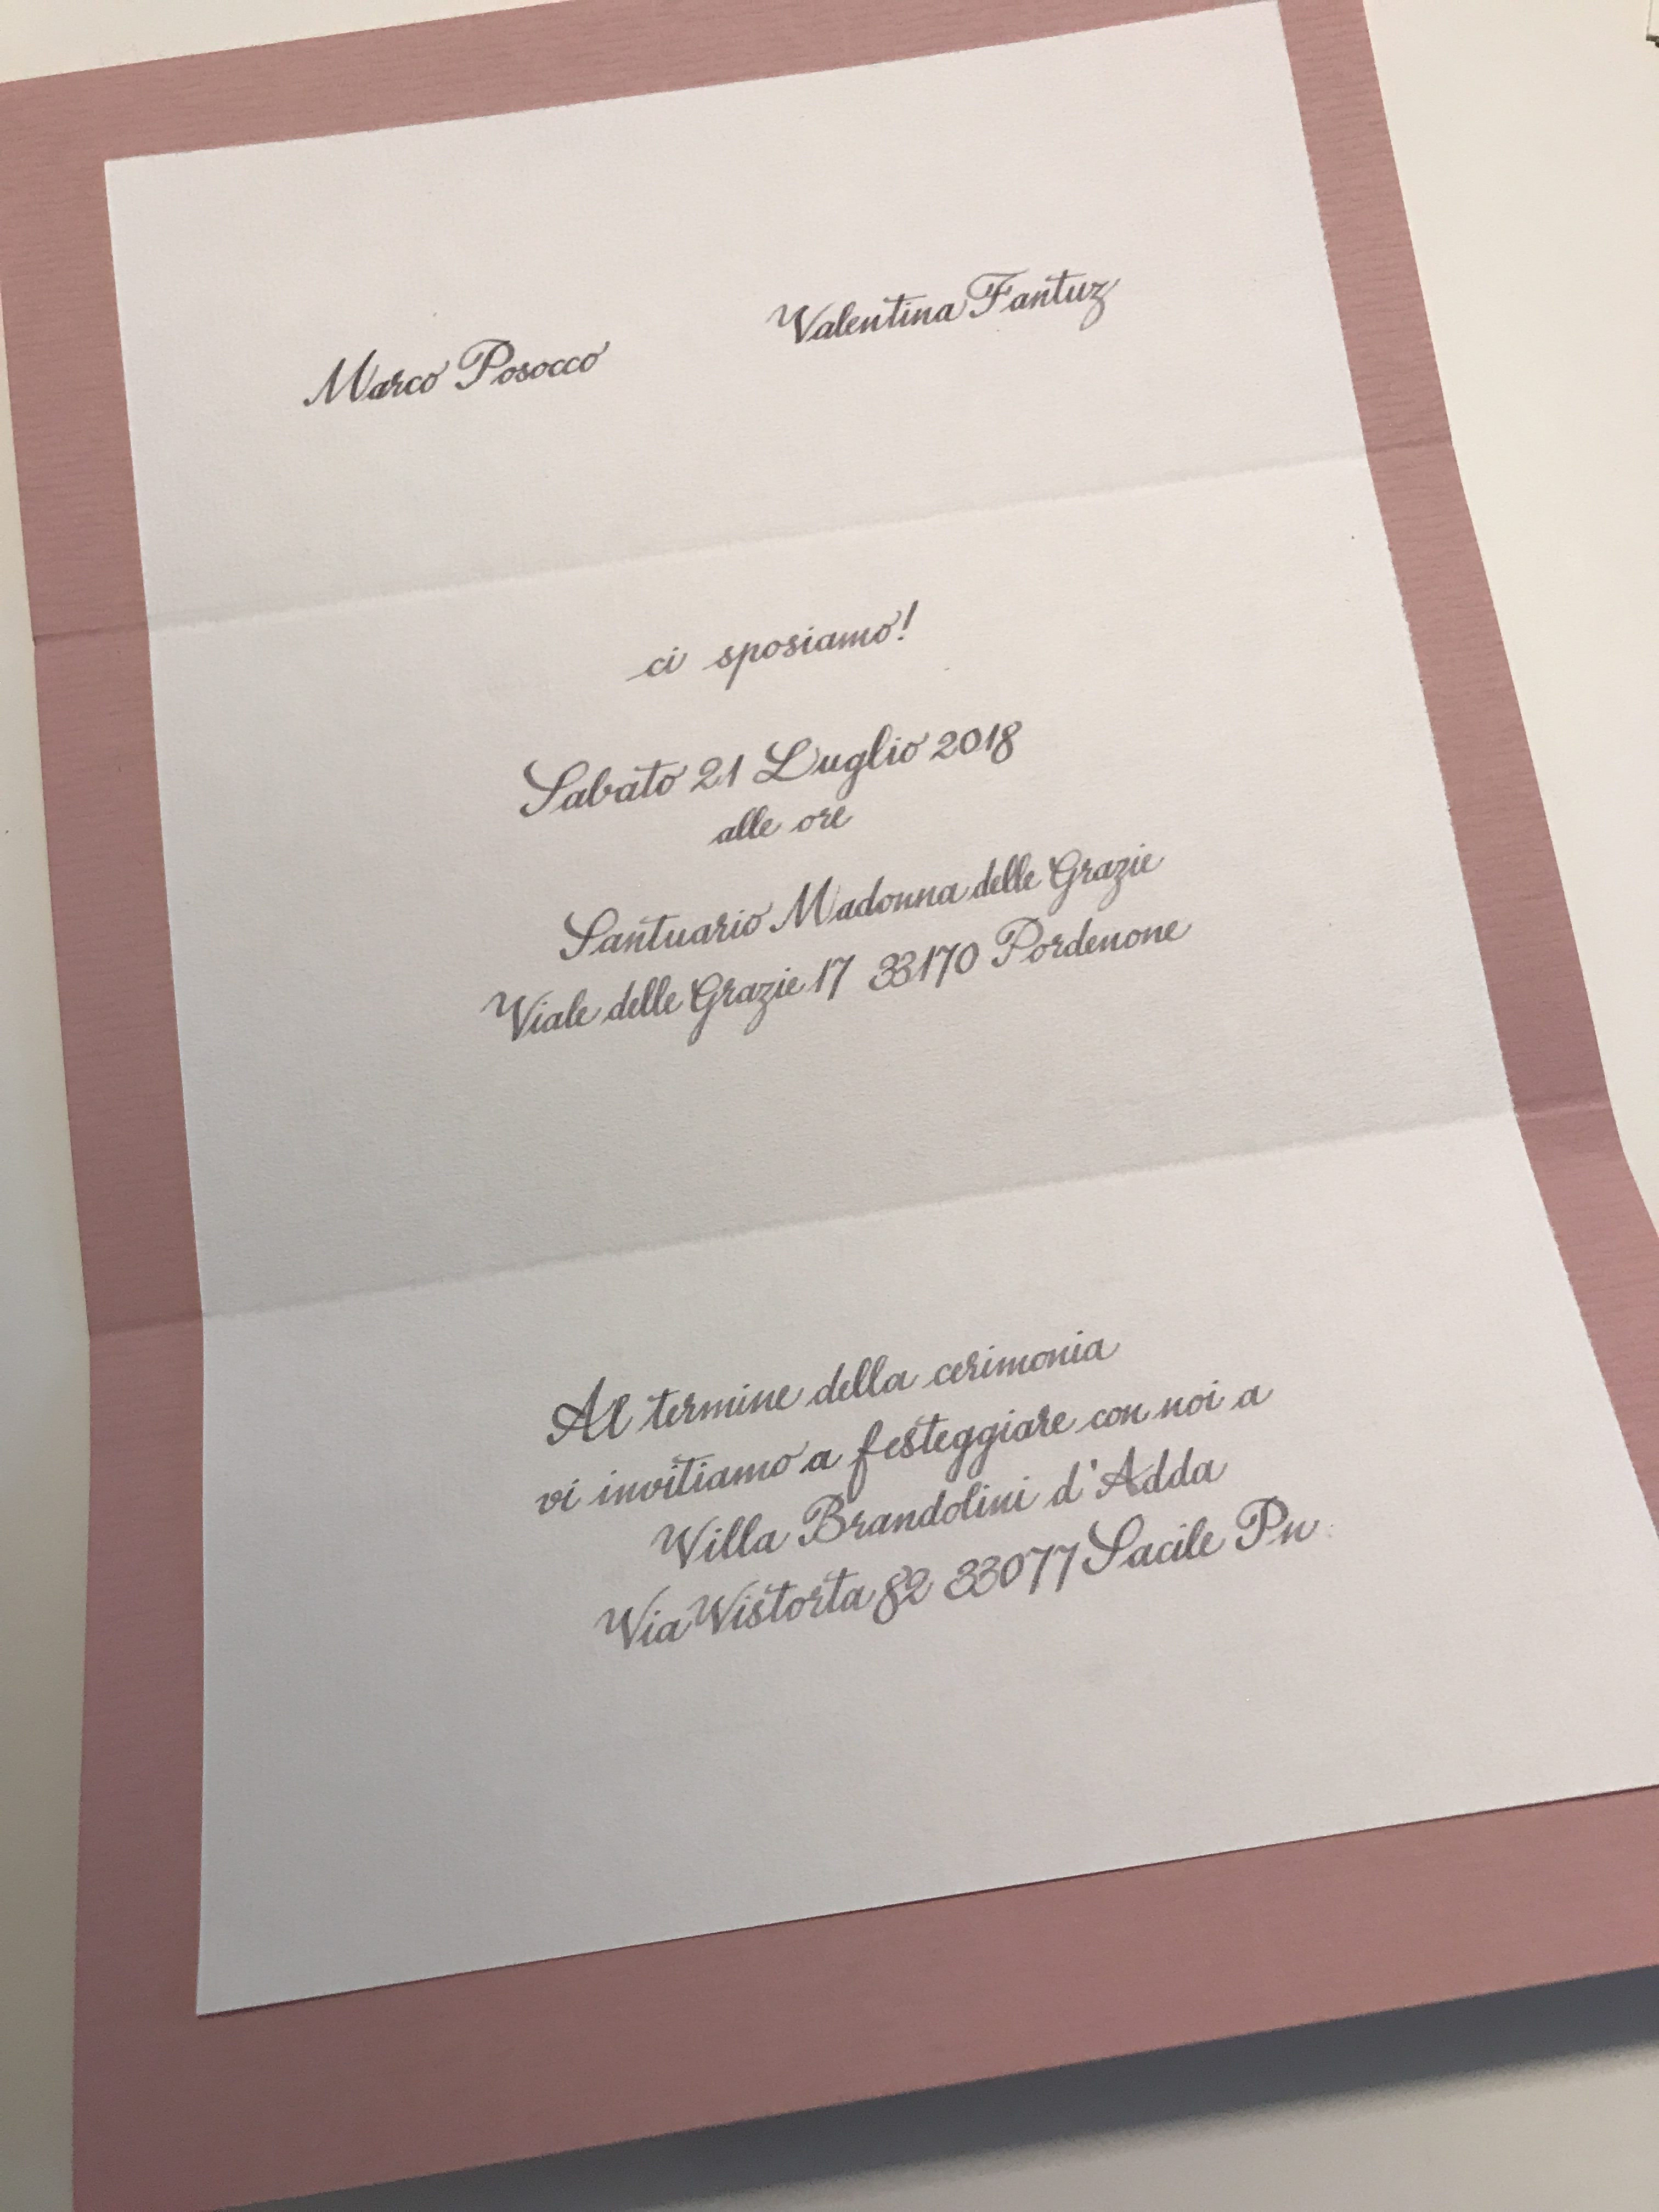 Marco Posocco
Valentina Fantuz
ci sposiamo!
Sabato 21 Luglio 2018
alle ore
Santuario Madonna delle Grazie
Viale delle Grazie 17 33170 Pordenone
Al termine della cerimonia
vi invitiamo a festeggiare con noi a
Villa Brandolini d'Adda
Via Vistorta 82 33077 Sacile Pn